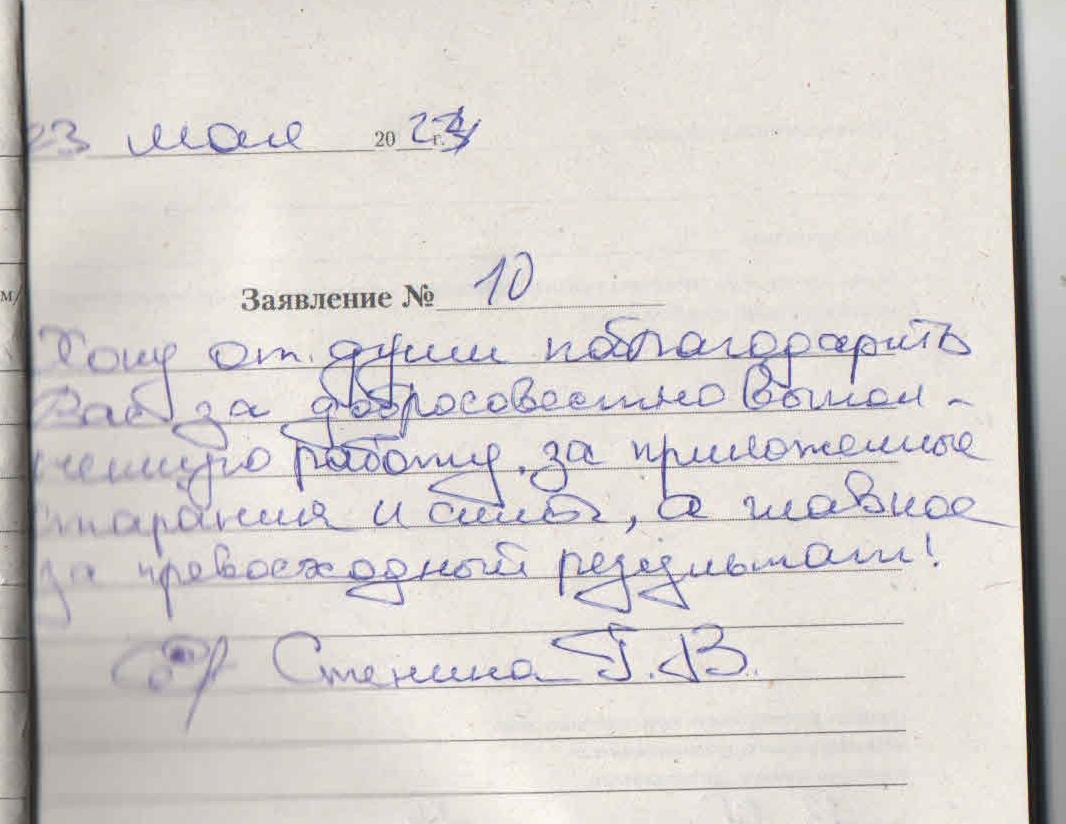 23 мая 20 23 г.
м/
Заявление № 10
Хочу от души поблагодарить
Вас за добросовестно выпол-
ненную работу, за приложенные
старания и силы, а главное
за превосходный результат!
Стенина Г. В.